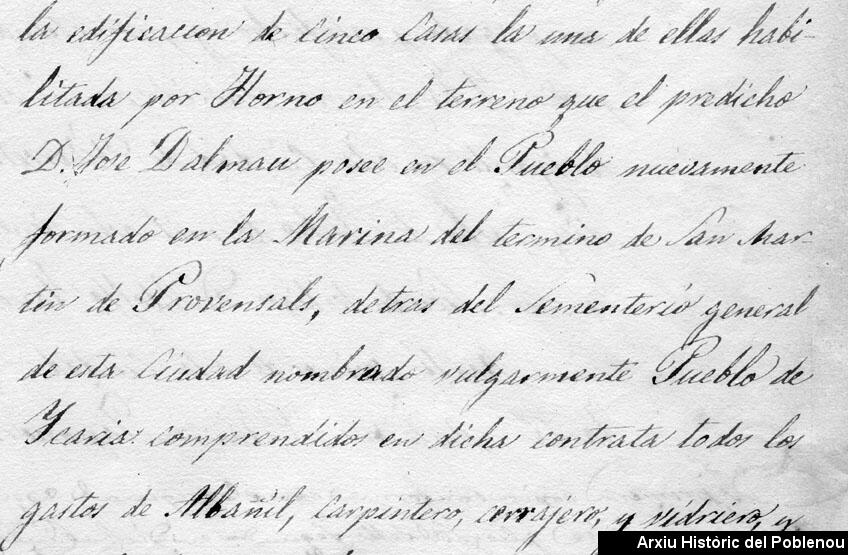 la edificacion de cinco Casas la una de ellas habi-
litada por Horno en el terreno que el predicho
D. Jose Dalmau posee en el Pueblo nuevamente
formado en la Marina del termino de San Mar-
tin de Provensals, detras del Sementerio general
de esta Ciudad nombrado vulgarmente Pueblo de
Ycaria comprendidos en dicha contrata todos los
gastos de Albañil, Carpintero, cerrajero, y vidriero, y
Arxiu Històric del Poblenou